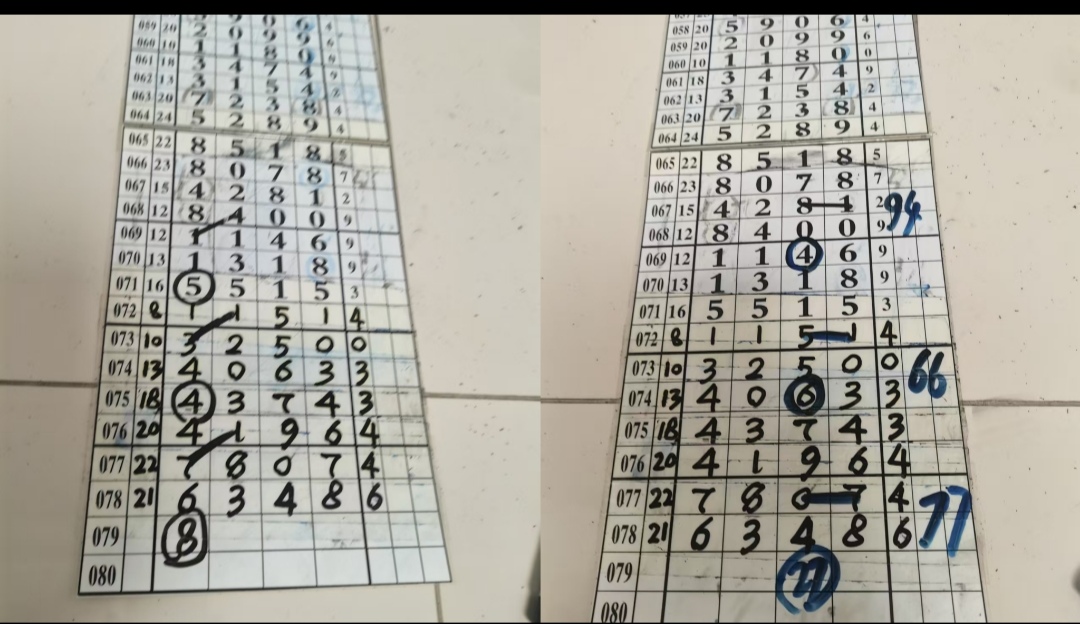 059 20 2 0 9 9 6
060 10 1 1 8 0
061 18 3 4 7 4 9
062 13 3 1 5 4 2
063 20 7 2 3 8 4
064 24 5 2 8 9 4
065 22 8 5 1 8 5
066 23 8 0 7 8 7
067 15 4 2 8 1 2
068 12 8 4 0 0 9
069 12 1 1 4 6 9
070 13 1 3 1 8 9
071 16 5 5 1 5 3
072 8 1 1 5 1 4
073 10 3 2 5 0 0
074 13 4 0 6 3 3
075 18 4 3 7 4 3
076 20 4 1 9 6 4
077 22 7 8 0 7 4
078 21 6 3 4 8 6
079 8
080
058 20 5 9 0 6 4
059 20 2 0 9 9 6
060 10 1 1 8 0 0
061 18 3 4 7 4 9
062 13 3 1 5 4 2
063 20 7 2 3 8 4
064 24 5 2 8 9 4
065 22 8 5 1 8 5
066 23 8 0 7 8 7
067 15 4 2 8 1 2 94
068 12 8 4 0 0 9
069 12 1 1 4 6 9
070 13 1 3 1 8 9
071 16 5 5 1 5 3
072 8 1 1 5 1 4
073 10 3 2 5 0 0 66
074 13 4 0 6 3 3
075 18 4 3 7 4 3
076 20 4 1 9 6 4
077 22 7 8 0 7 4 77
078 21 6 3 4 8 6
079
080